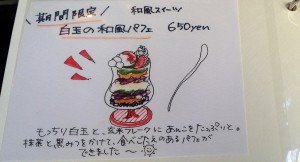 期間限定 和風スイーツ
白玉の和風パフェ 650yen
もっちり白玉と、玄米フレークに あんこをたっぷりと。
抹茶と黒みつをかけて、食べごたえのあるパフェが
できました〜